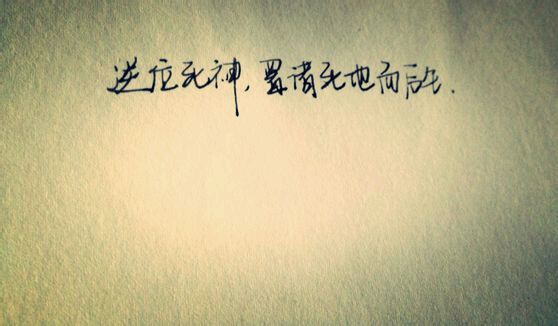 逆位死神，置诸死地而后生.